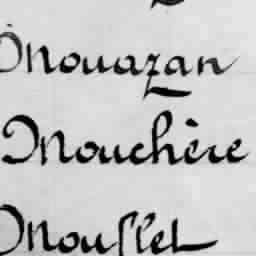 Mouazan
Mouchère
Mouflet